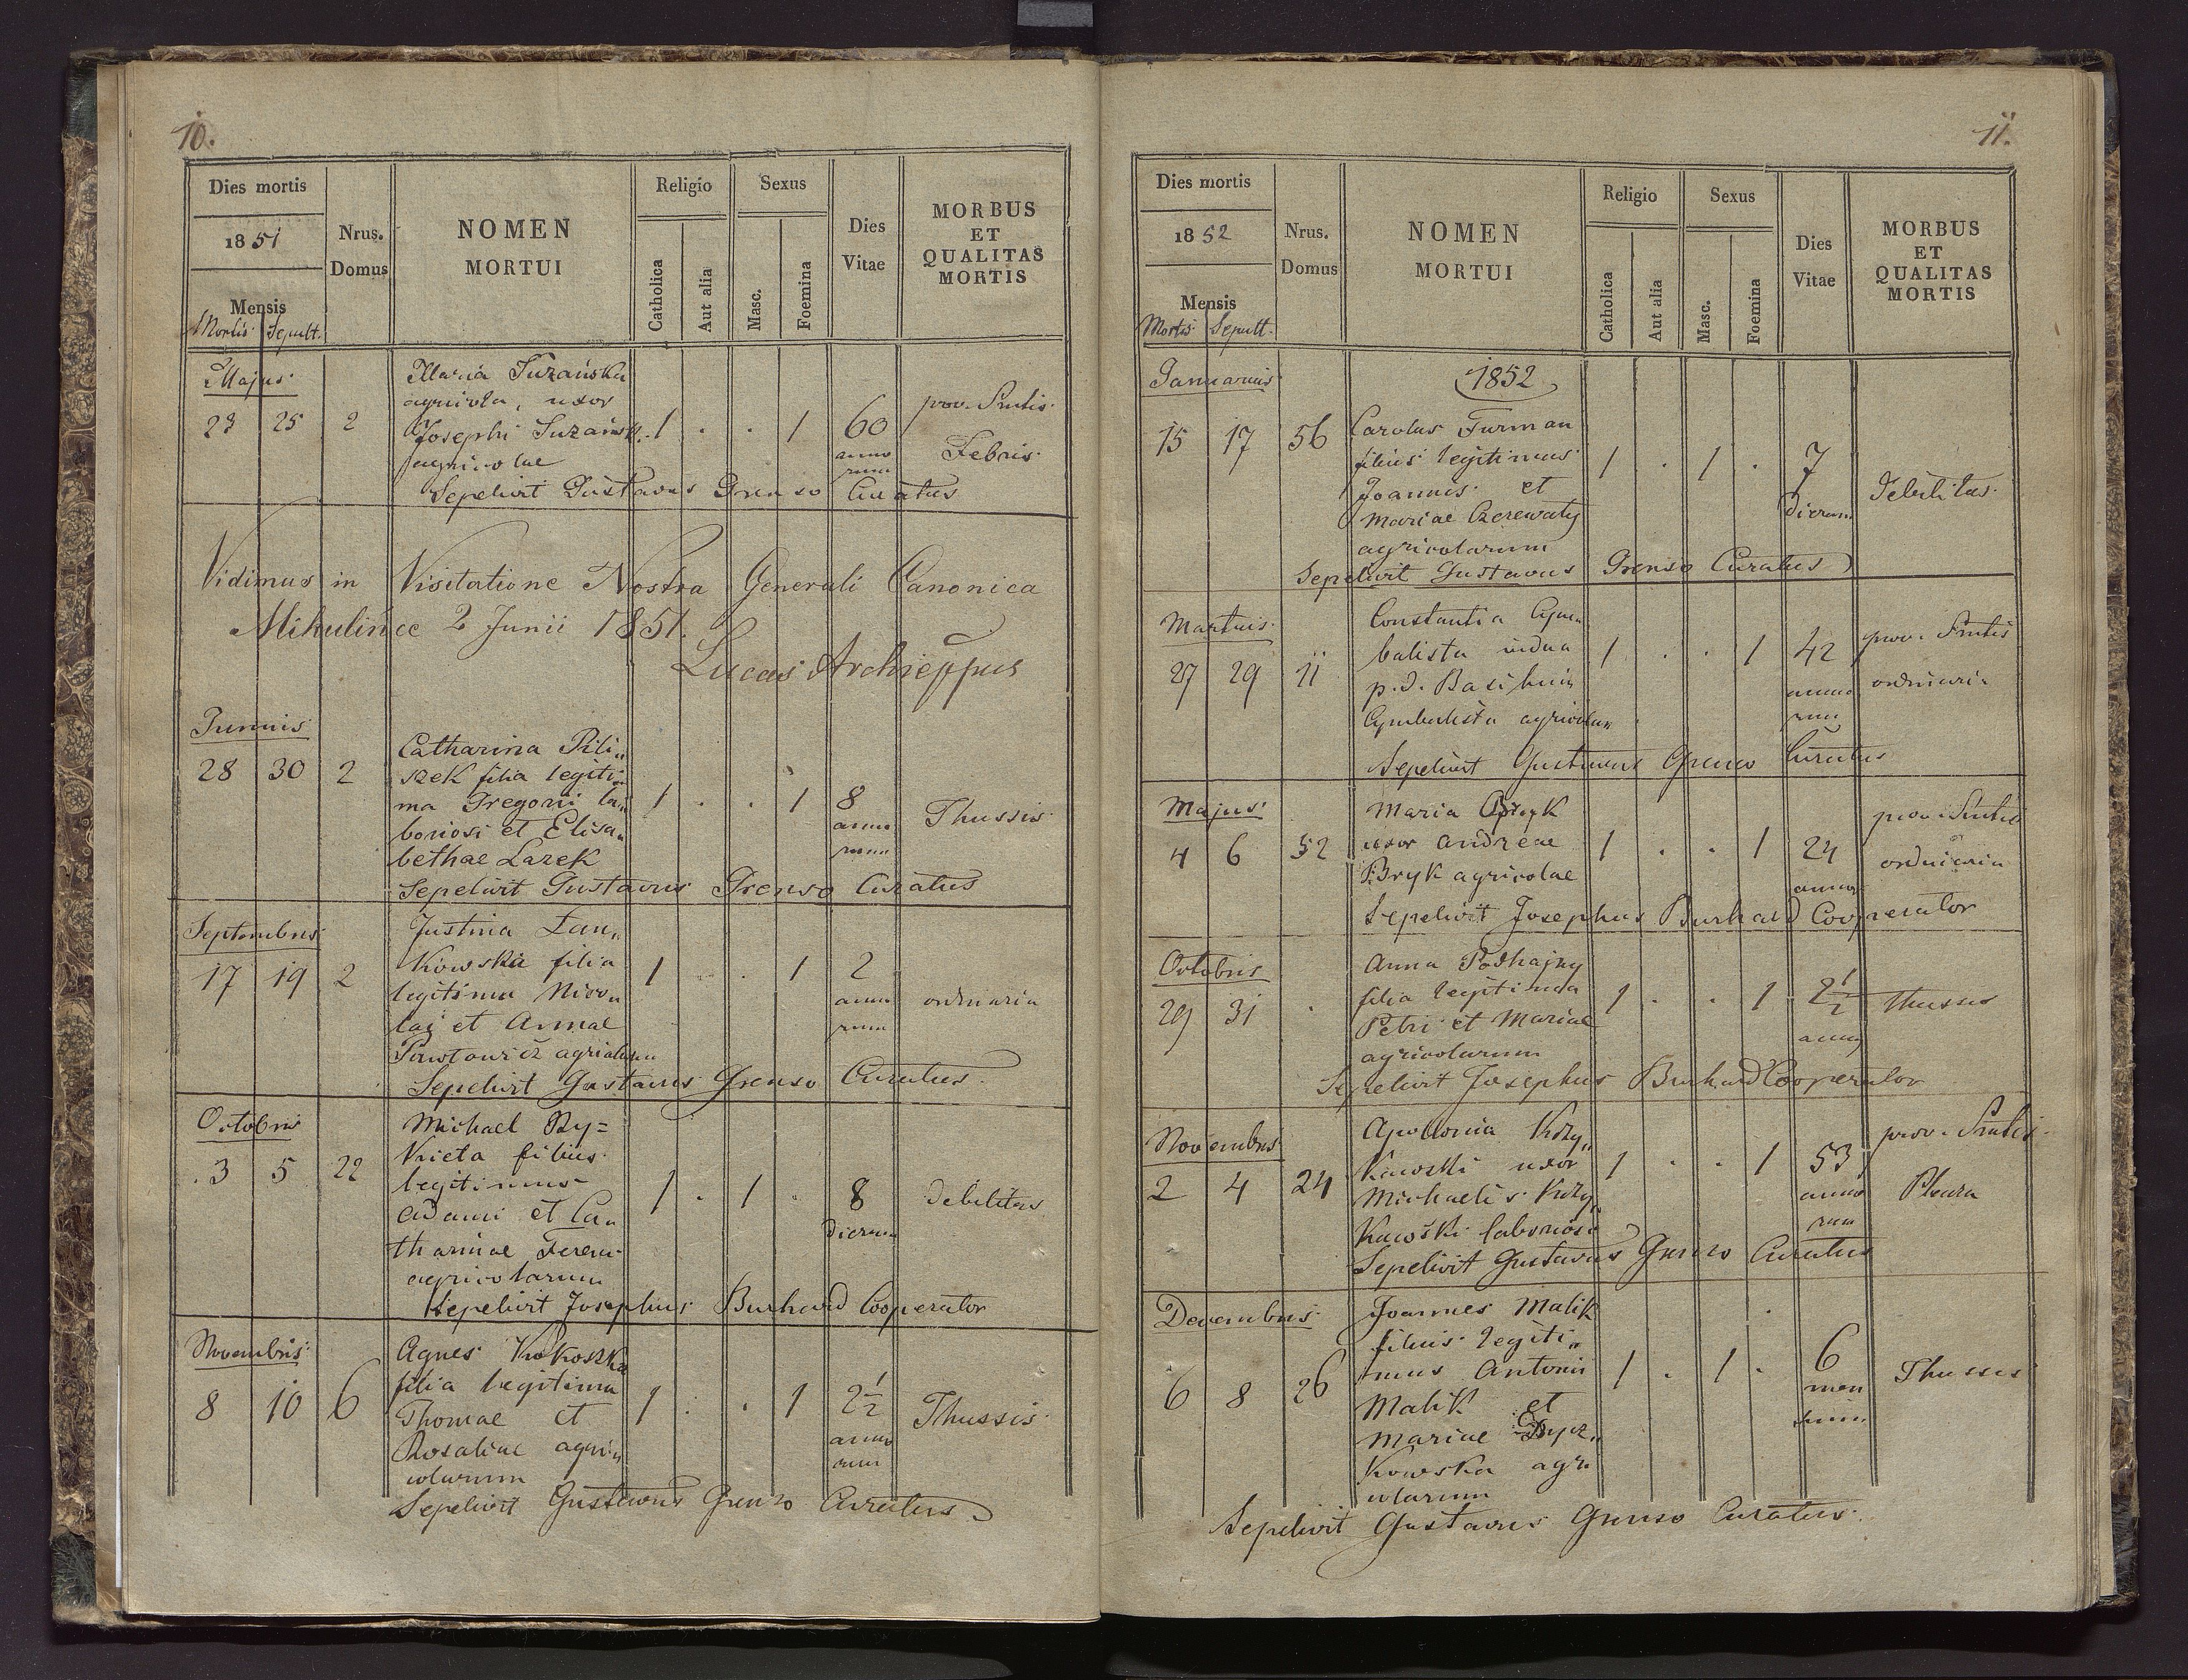 10.
Dies mortis
1851
Mensis
Mortis Sepult.
Nrus. Domus
NOMEN
MORTUI
Religio
Catholica
Aut alia
Sexus
Masc.
Foemina
Dies
Vitae
MORBUS
ET
QUALITAS
MORTIS
Majus
23 25 2
Maria Tuzańska
agricola, uxor
Josephi Tuzańsk.
agricolae
1 . . 1
60
anno
rum
Febris
Sepelivit Gustavus Grenso Curatus
Vidimus in Visitatione Nostra Generali Canonica
Mikulińce 2 Junii 1851.
Lucas Archieppus
Junius
28 30 2
Catharina Pili„
szek filia legiti„
ma Gregorii la„
boriosi et Elisa„
bethae Lazek
1 . . 1
8
anno
rum
Thussis
Sepelivit Gustavus Grenso Curatus
Septembris
17 19 2
Justina Lan„
kowska filia
legitima Nico„
lai et Annae
1 . . 1
2
anno
rum
ordinaria
Sepelivit Gustavus Grenso Curatus
Octobris
3 5 22
Michael Ry=
kieta filius
legitimus
Adami et Ca„
tharinae
agricolarum
1 . 1 .
8
dierum
debilitas
Sepelivit Josephus Burhard Cooperator
Novembris
8 10 6
Agnes Kokoszka
filia legitima
Thomae et
Rosaliae agri„
colarum
1 . . 1
2½
anno
rum
Thussis
Sepelivit Gustavus Grenso Curatus
11.
Dies mortis
1852
Mensis
Mortis Sepult.
Nrus.
Domus
NOMEN
MORTUI
Religio
Catholica
Aut alia
Sexus
Masc.
Foemina
Dies
Vitae
MORBUS
ET
QUALITAS
MORTIS
Januarius
1852
15 17 56
Carolus Furman
filius legitimus
Joannis et
Mariae Czerewaty
agricolarum
1 . 1 .
7
dierum
debilitas
Sepelivit Gustavus Grenso Curatus
Martius
27 29 11
Constantia Cym„
balista vidua
p. d. Basilium
Cymbalista agricolam
1 . . 1
42
anno
rum
ordinaria
Sepelivit Gustavus Grenso Curatus
Majus
4 6 52
Maria
uxor Andreae
Bryk agricolae
1 . . 1
24
anno
ordinaria
Sepelivit Josephus Burhard Cooperator
Octobris
29 31 .
Anna Podhajny
filia legitima
Petri et Mariae
agricolarum
1 . . 1
2½
anno
thussis
Sepelivit Josephus Burhard Cooperator
Novembris
2 4 24
Apollonia Krzy„
kawski uxor
Michaelis Krzy„
kawski laboriosi
1 . . 1
53
anno
rum
Sepelivit Gustavus Grenso Curatus
Decembris
6 8 26
Joannes Malik
filius legiti„
mus Antonii
Malik et
Mariae
kowska agri
colarum
1 . 1 .
6
men
sium
Thussis
Sepelivit Gustavus Grenso Curatus